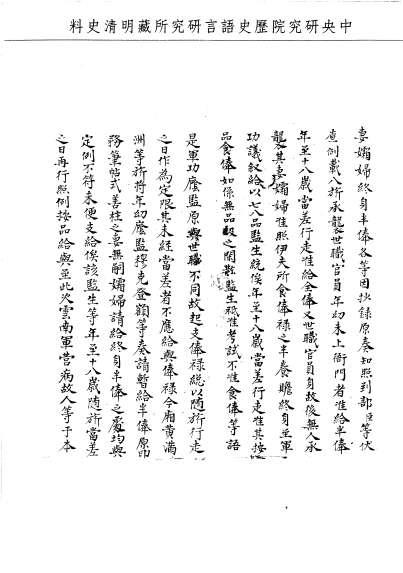 中央研究院歷史語言研究所藏明清史料
妻孀婦終身半俸各等因抄錄原奏知照到部臣等伏
查例載八旂承襲世職官員年幼未上衙門者准給半俸
年至十八歲當差行走准給全俸又世職官員身故後無人承
襲其妻孀婦准照伊夫所食俸祿之半養贍終身至軍
功議敘給以七八品監生統俟年至十八歲當差行走准其按
品食俸如係無品級之閒散監生祗准考試不准食俸等語
是軍功廕監原與世職不同故起支俸祿總以隨旂行走
之日作為定限其未經當差者不應給與俸祿今廂黃滿
洲等旂將年幼廕監穆克登額等奏請暫給半俸原卹
務筆帖式善柱之妻無嗣孀婦請給終身半俸之處均與
定例不符未便支給俟該監生等年至十八歲隨旂當差
之日再行照例按品給與至此次雲南軍營病故人等于本